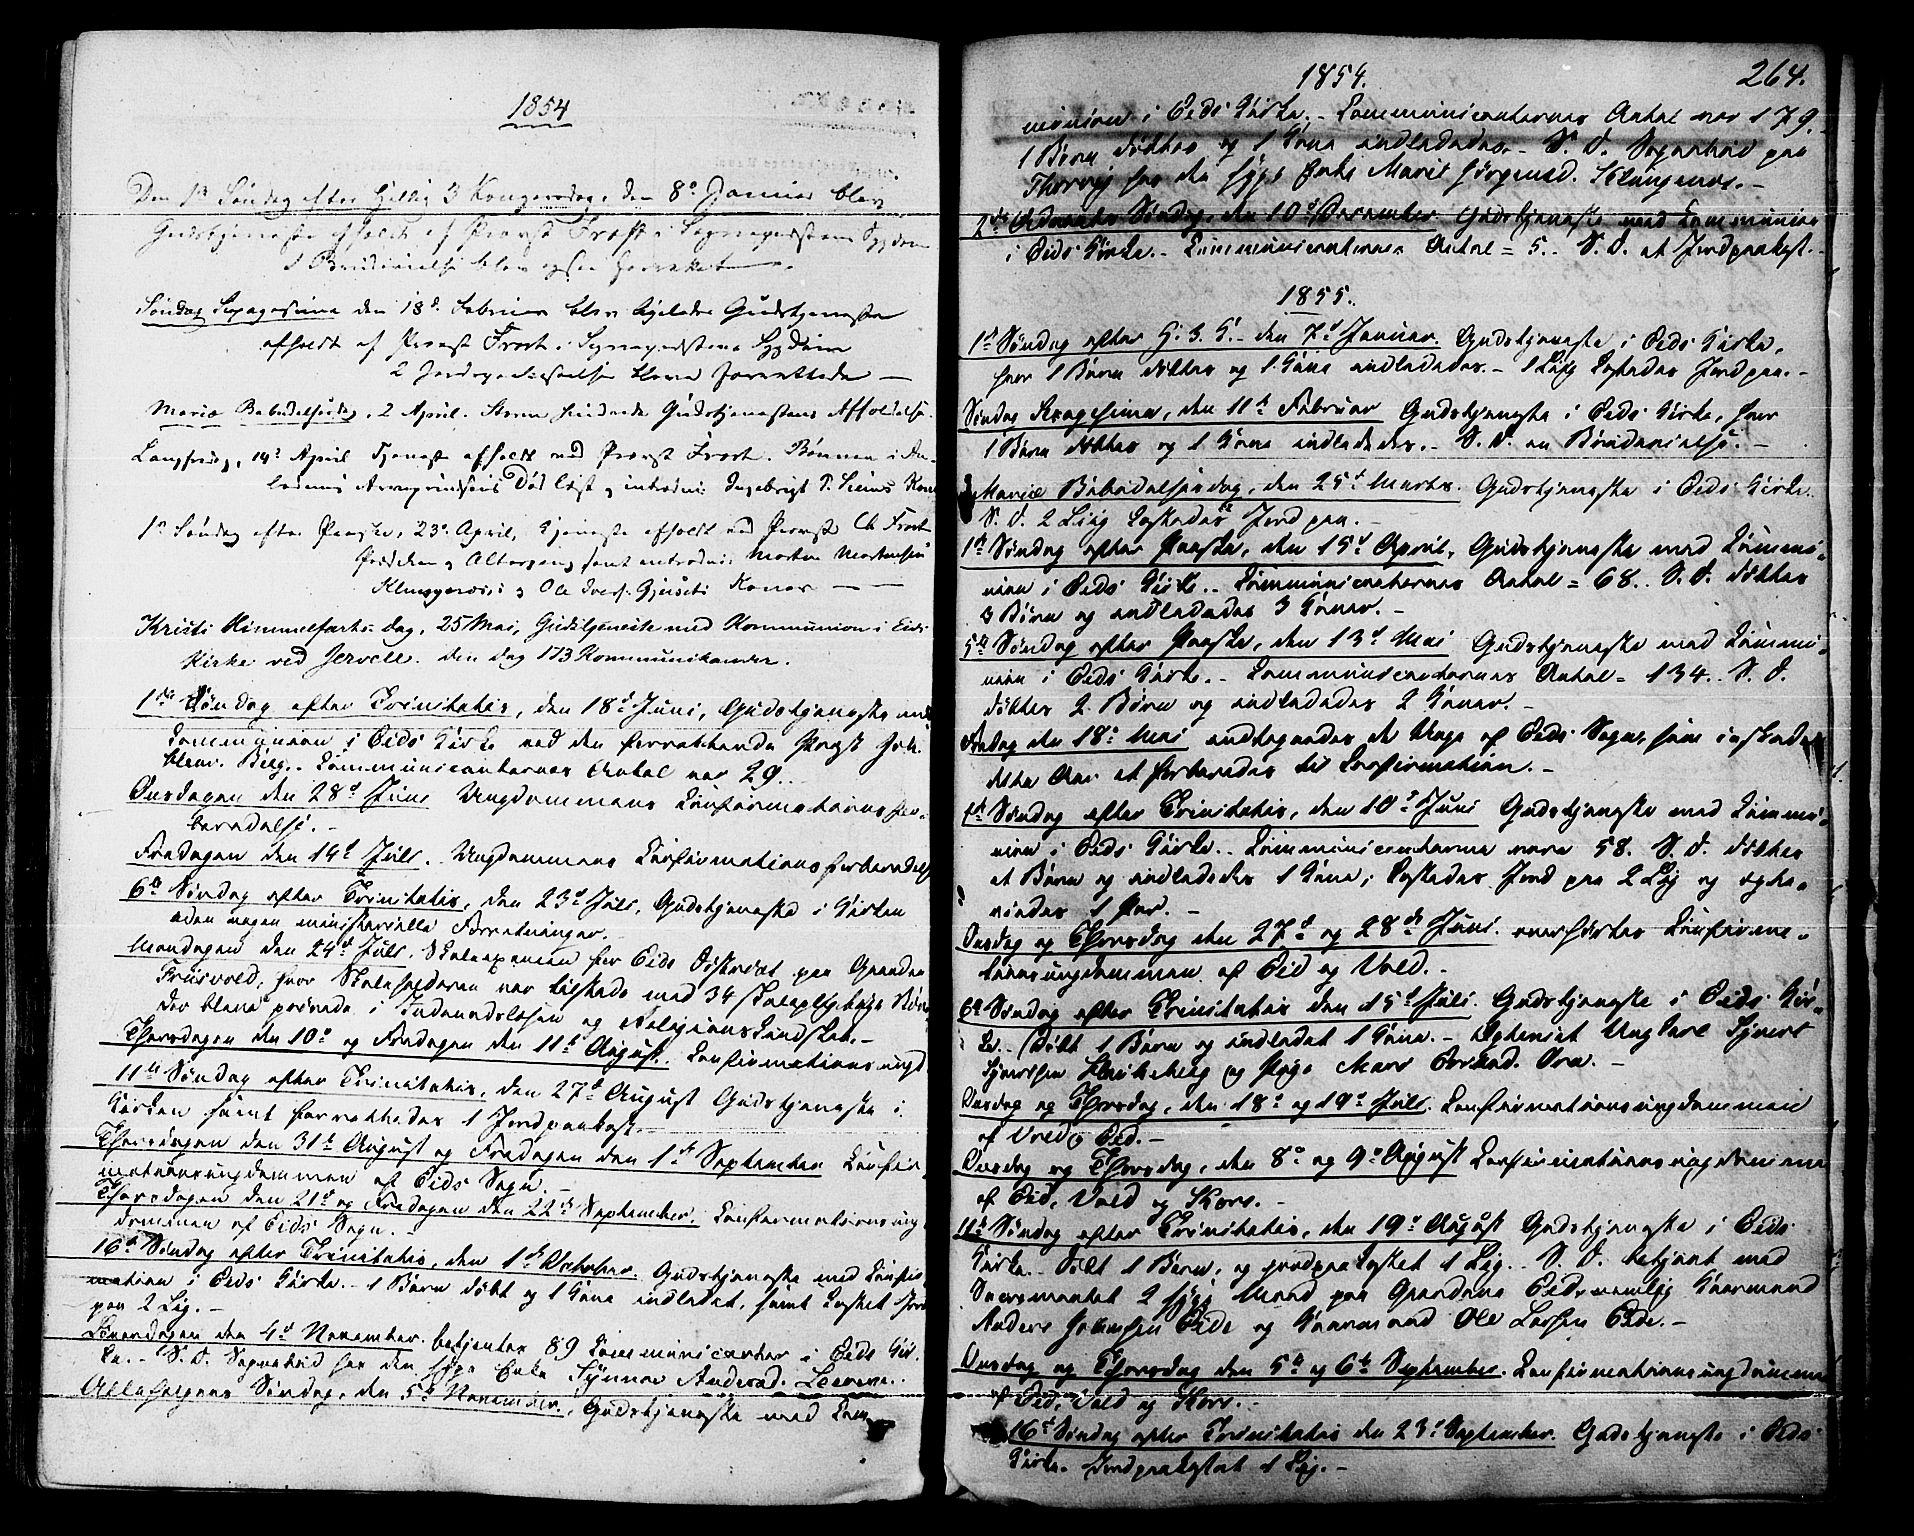 1854
Den 1ste Søndag efter Hellig 3 Kongersdag, den 8de Januar blev
Gudstjeneste afholdt af Provst Frost i Sognepræstens Sygdom
1 Brudevielse blev ogsaa forrettet
Søndag Sexagesima den 18de Februar blev ligeledes Gudstjeneste
afholdt af Provst Frost i Sognepræstens Sygdom
2 Jordspaakastelse bleve forrettede —
Mariæ Bebudelsesdag, 2 April. Storm hindrede Gudstjenestens Afholdelse.
Langfredag, 14de April Tjeneste afholdt ved Provst Frost. Bønnen i An-
ledning Arveprindsens Død læst og introd.: Ingebrigt P. Kone
1ste Søndag efter Paaske, 23de April, Tjeneste afholdt ved Provst Ch Frost
Prædiken og Altergang samt introd.: Morten Mortensen
Klungenæs; og Ole Iver. Koner —
Kristi Himmelfarts-dag, 25 Mai, Gudstjeneste med Kommunion i Eids
Kirke ved Jervell. den dag 173 Kommunikanter.
1ste Søndag efter Trinitatis, den 18de Juni, Gudstjeneste med
Communion i Eids Kirke ved den forrettende Præst Joh.
Berg. Communicanternes Antal var 29.
Onsdagen den 28de Juni Ungdommens Confirmationsfor-
beredelse. —
Fredagen den 14de Juli. Ungdommens Confirmationsforberedelse
6te Søndag efter Trinitatis, den 23de Juli, Gudstjeneste i Kirken
uden nogen ministerielle Forretninger.
Mandagen den 24de Juli. Skoleexamen for Eids Distrikt paa Gaarden
Frisvold, hvor Skoleholderen var tilstede med 34 skolepligtige Børn
der bleve prøvede i Indenadslæsen og Religionskundskab. —
Thorsdagen den 10de og Fredagen den 11te August. Confirmationsungd.
11te Søndag efter Trinitatis, den 27de August Gudstjeneste i
Kirken samt forrettedes 1 Jordpaakast. —
Thorsdagen den 31te August og Fredagen den 1ste September Confir-
mationsungdommen af Eids Sogn. —
Thorsdagen den 21de og Fredagen den 22de September. Confirmationsung-
dommen af Eids Sogn. —
16de Søndag efter Trinitatis, den 1ste October. Gudstjeneste med Confir-
mation i Eids Kirke. — 1 Barn døbt og 1 Kone indledet, samt kastet Jord
paa 2 Lig. —
Løverdagen den 4de November. betjentes 89 Communicanter i Eids Kir-
ke. — S. D. Sognebud hos den syge Enke Synnøv Andersd.
Allehelgens Søndag, den 5te November, Gudstjeneste med Com-
1854. 264.
munion i Eids Kirke. — Communicanternes Antal var 179.
1 Barn døbtes og 1 Kone indlededes. — S. D. Sognebud paa
Thorvig hos den syge Enke Marit Jørgensd. Klungenæs. —
2den Advents Søndag, den 10de December Gudstjeneste med Communion
i Eids Kirke. — Communicanternes Antal = 5. — S. D. et Jordpaakast. —
1855.
1ste Søndag efter H. 3 K. — den 7de Januar. Gudstjeneste i Eids Kirke,
hvor 1 Barn døbtes og 1 Kone indlededes. — 1 Lig kastedes Jord paa. —
Søndag Sexagesima, den 11te Februar Gudstjeneste i Eids Kirke, hvor
1 Barn døbtes og 1 Kone indlededes. — S. D. en Brudevielse. —
Mariæ Bebudelsesdag, den 25de Marts. Gudstjeneste i Eids Kirke.
S. D. 2 Liig kastedes Jord paa. —
1ste Søndag efter Paaske, den 15de April, Gudstjeneste med Commu-
nion i Eids Kirke. Communicanternes Antal = 68. S. D. døbtes
3 Børn og indlededes 3 Koner. —
5te Søndag efter Paaske, den 13de Mai Gudstjeneste med Commu-
nion i Eids Kirke. — Communicanternes Antal = 134. S. D.
døbtes 2 Børn og indlededes 2 Koner. —
Fredag den 18de Mai de Unge af Eids Sogn, som inskede
dette Aar at forberedes til Confirmation. —
1ste Søndag efter Trinitatis, den 10de Juni Gudstjeneste med Commu-
nion i Eids Kirke. Communicanterne vare 58. S. D. døbtes
et Barn og indlededes 1 Kone; kastedes Jord paa 2 Lig og ægte-
viedes 1 Par. —
Onsdag og Thorsdag den 27de og 28de Juni. overhørtes Confirma-
tionsungdommen af Eid og Vold. —
6te Søndag efter Trinitatis den 15de Juli. Gudstjeneste i Eids Kir-
ke. — Døbt 1 Barn og indledet 1 Kone. — Ungkarl Syvert
Syvertsen og Pige
Onsdag og Thorsdag, den 18de og 19de Juli. Confirmationsungdommen
af Vold og Eid. —
Onsdag og Thorsdag, den 8de og 9de August Confirmationsungdommen
af Eid, Vold og Kors. —
11te Søndag efter Trinitatis, den 19de August Gudstjeneste i Eids
Kirke. Døbt 1 Barn, og jordpaakastet 1 Lig. S. D. betjent med
Sacramentet 2 syge Mænd paa Gaardene Eide nemlig Gaarmand
Anders Johnsen Eide og Gaarmand Ole Larsen Eide. —
Onsdag og Thorsdag den 5te og 6te September. Confirmationsungdommen
af Eid, Vold og Kors. —
16de Søndag efter Trinitatis den 23de September. Gudstjeneste i Eids
Kirke. Jordpaakastet 1 Lig. —